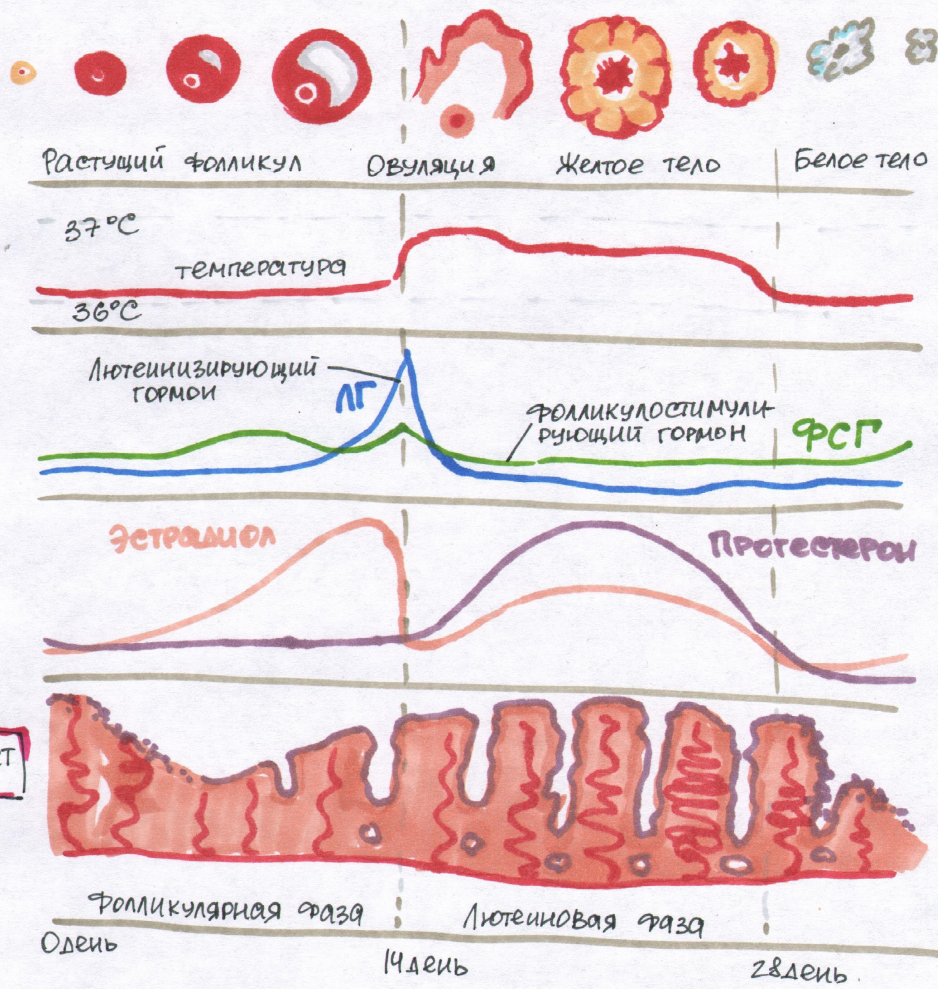 Растущий фолликул
Овуляция
Желтое тело
Белое тело
37°C
температура
36°C
Лютеинизирующий
гормон
ЛГ
Фолликулостимули-
рующий гормон
ФСГ
Эстрадиол
Прогестерон
Фолликулярная фаза
Лютеиновая фаза
0 день
14 день
28 день.